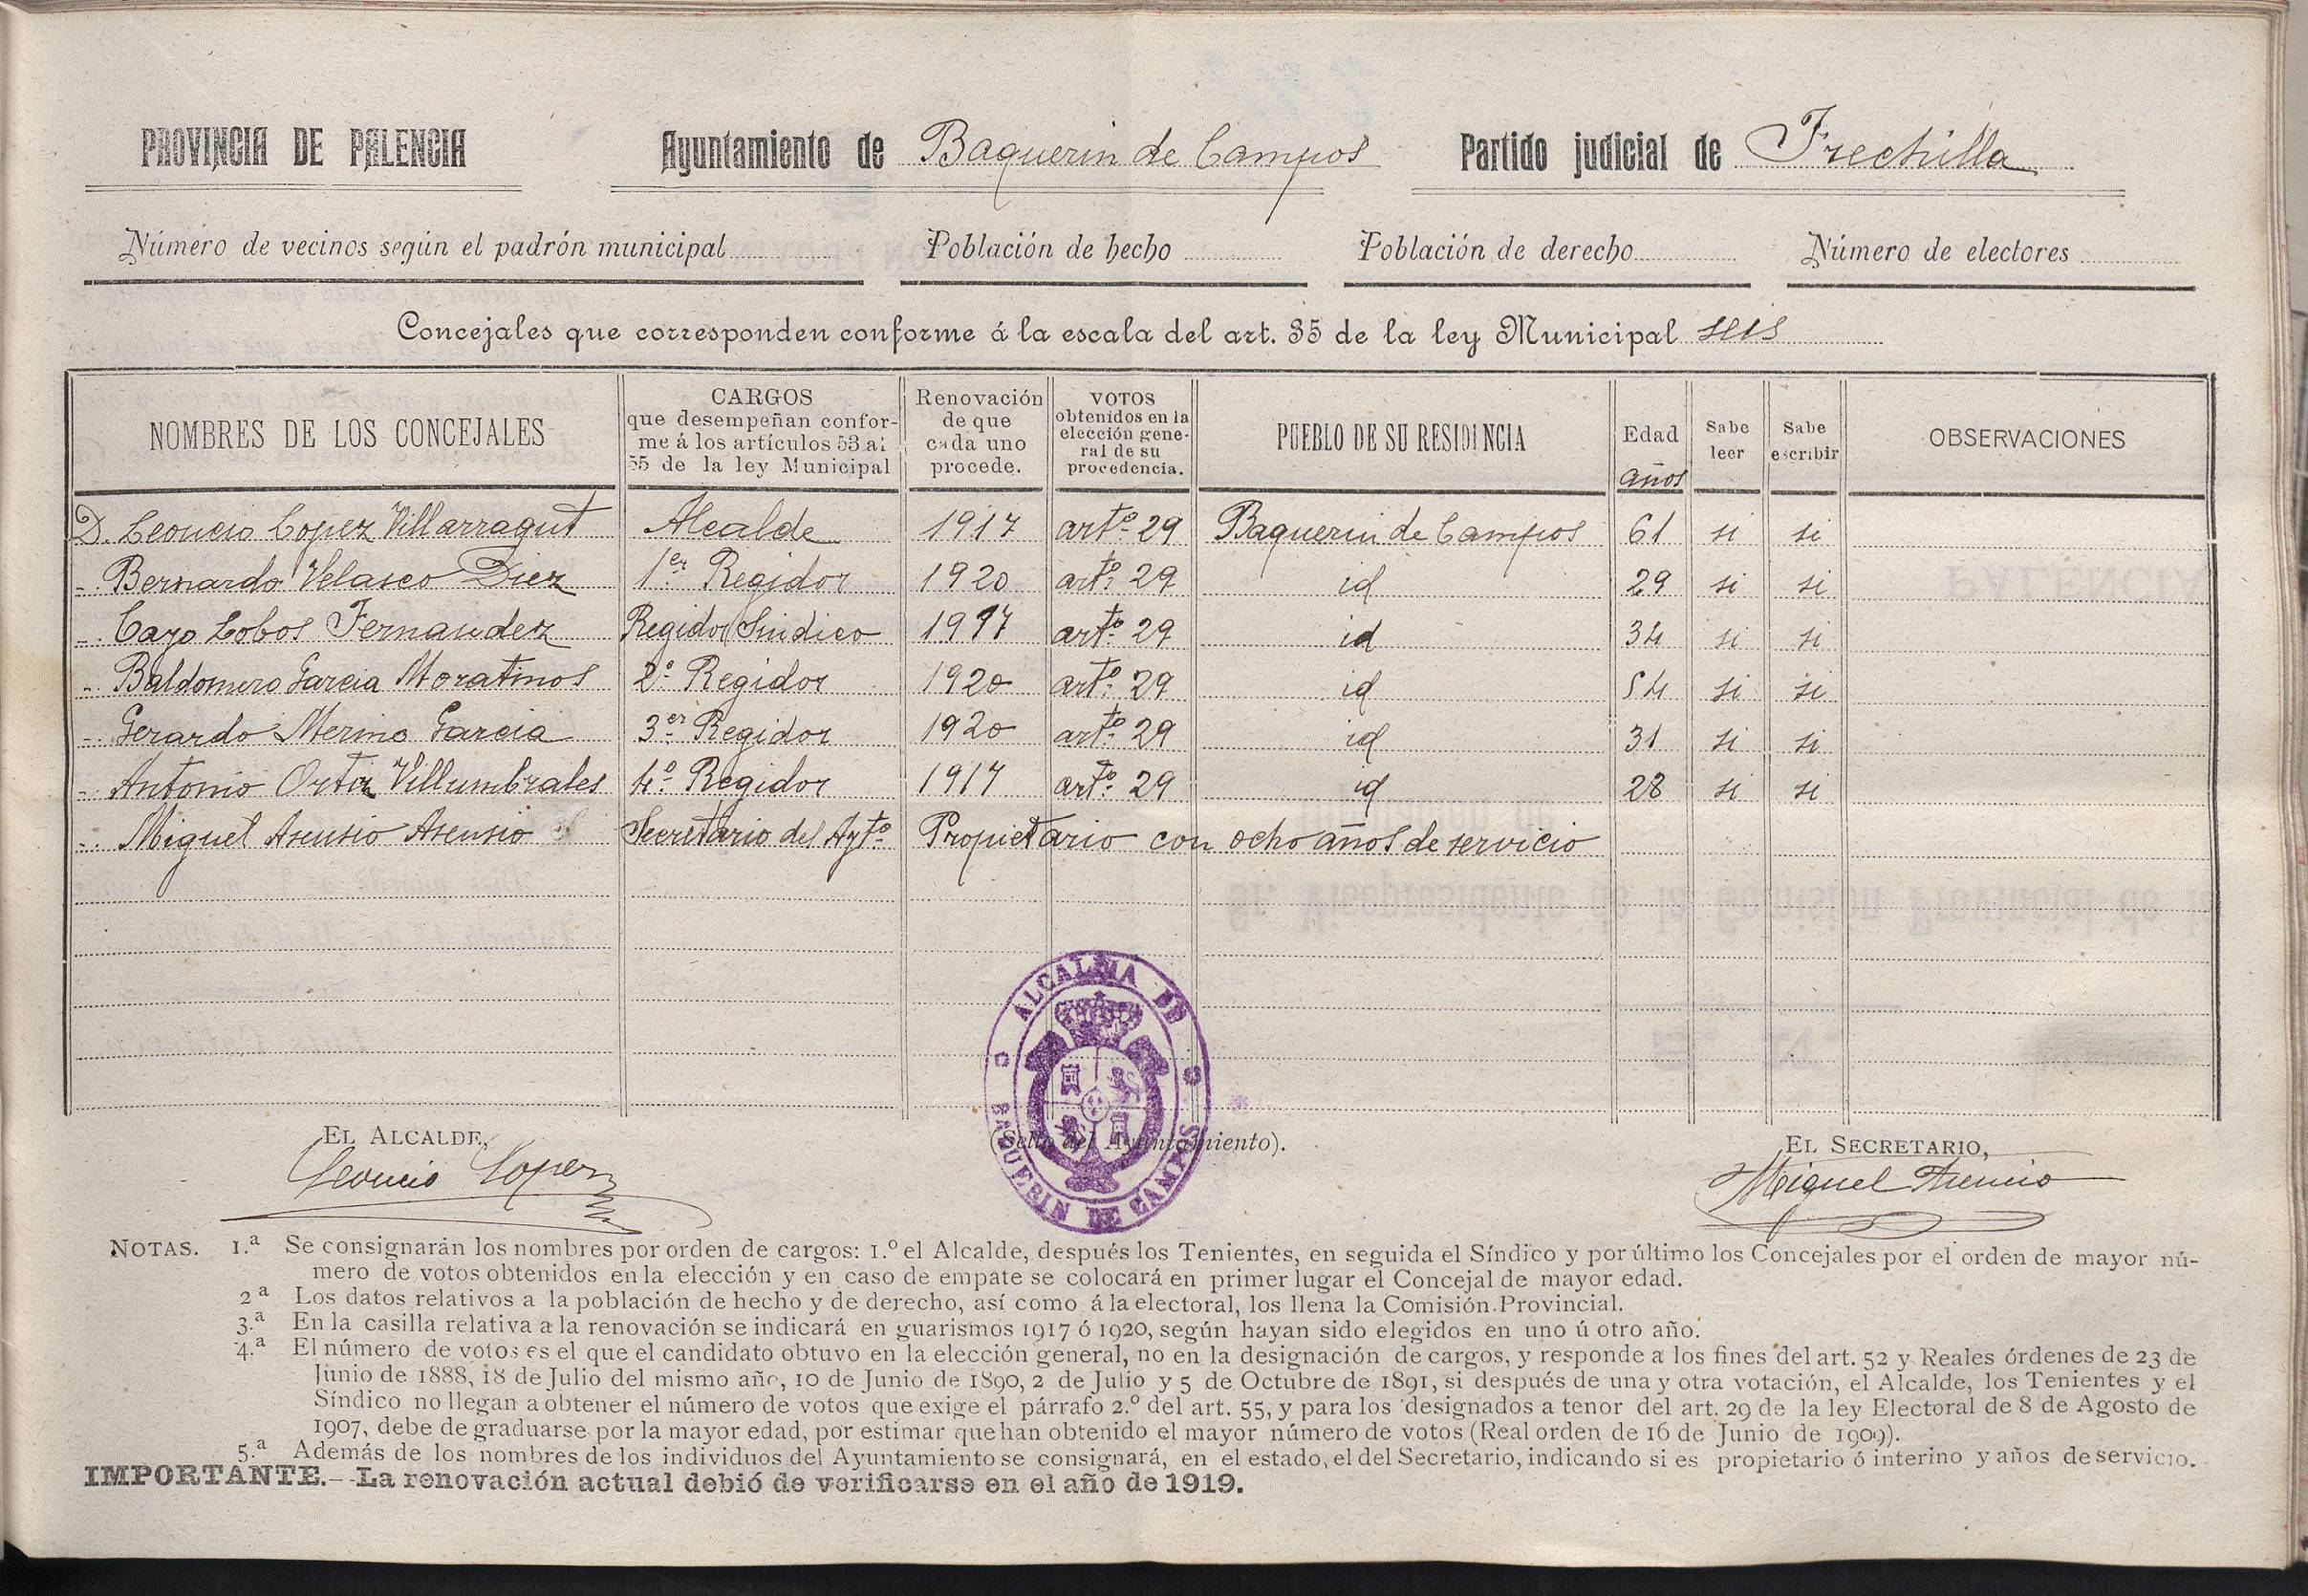 PROVINCIA DE PALENCIA Ayuntamiento de Baquerin de Campos Partido judicial de Frechilla
Número de vecinos según el padrón municipal Población de hecho Población de derecho Número de electores
Concejales que corresponden conforme á la escala del art. 35 de la ley Municipal seis
NOMBRES DE LOS CONCEJALES
CARGOS
que desempeñan confor-
me á los artículos 53 al
55 de la ley Municipal
Renovación
de que
cada uno
procede.
VOTOS
obtenidos en la
elección gene-
ral de su
procedencia.
PUEBLO DE SU RESIDENCIA
Edad
años
Sabe
leer
Sabe
escribir
OBSERVACIONES
D. Leoncio Lopez Villarragut Alcalde 1917 artº 29 Baquerin de Campos 61 si si
- Bernardo Velasco Diez 1er Regidor 1920 artº 29 id 29 si si
- Cayo Lobos Fernandez Regidor Sindico 1917 artº 29 id 34 si si
- Baldomero Garcia Moratinos 2º Regidor 1920 artº 29 id 54 si si
- Gerardo Merino Garcia 3er Regidor 1920 artº 29 id 31 si si
- Antonio Ortiz Villumbrales 4º Regidor 1917 artº 29 id 28 si si
- Miguel Asensio Asensio Secretario del Aytº Propietario con ocho años de servicio
ALCALDIA DE
BAQUERIN DE CAMPOS
EL ALCALDE, (Sello del Ayuntamiento). EL SECRETARIO,
Leoncio Lopez Miguel Asensio
NOTAS. 1.ª Se consignarán los nombres por orden de cargos: 1.º el Alcalde, después los Tenientes, en seguida el Síndico y por último los Concejales por el orden de mayor nú-
mero de votos obtenidos en la elección y en caso de empate se colocará en primer lugar el Concejal de mayor edad.
2ª Los datos relativos a la población de hecho y de derecho, así como á la electoral, los llena la Comisión Provincial.
3.ª En la casilla relativa a la renovación se indicará en guarismos 1917 ó 1920, según hayan sido elegidos en uno ú otro año.
4.ª El número de votos es el que el candidato obtuvo en la elección general, no en la designación de cargos, y responde a los fines del art. 52 y Reales órdenes de 23 de
Junio de 1888, 18 de Julio del mismo año, 10 de Junio de 1890, 2 de Julio y 5 de Octubre de 1891, si después de una y otra votación, el Alcalde, los Tenientes y el
Síndico no llegan a obtener el número de votos que exige el párrafo 2.º del art. 55, y para los designados a tenor del art. 29 de la ley Electoral de 8 de Agosto de
1907, debe de graduarse por la mayor edad, por estimar que han obtenido el mayor número de votos (Real orden de 16 de Junio de 1909).
5.ª Además de los nombres de los individuos del Ayuntamiento se consignará, en el estado, el del Secretario, indicando si es propietario ó interino y años de servicio.
IMPORTANTE.—La renovación actual debió de verificarse en el año de 1919.